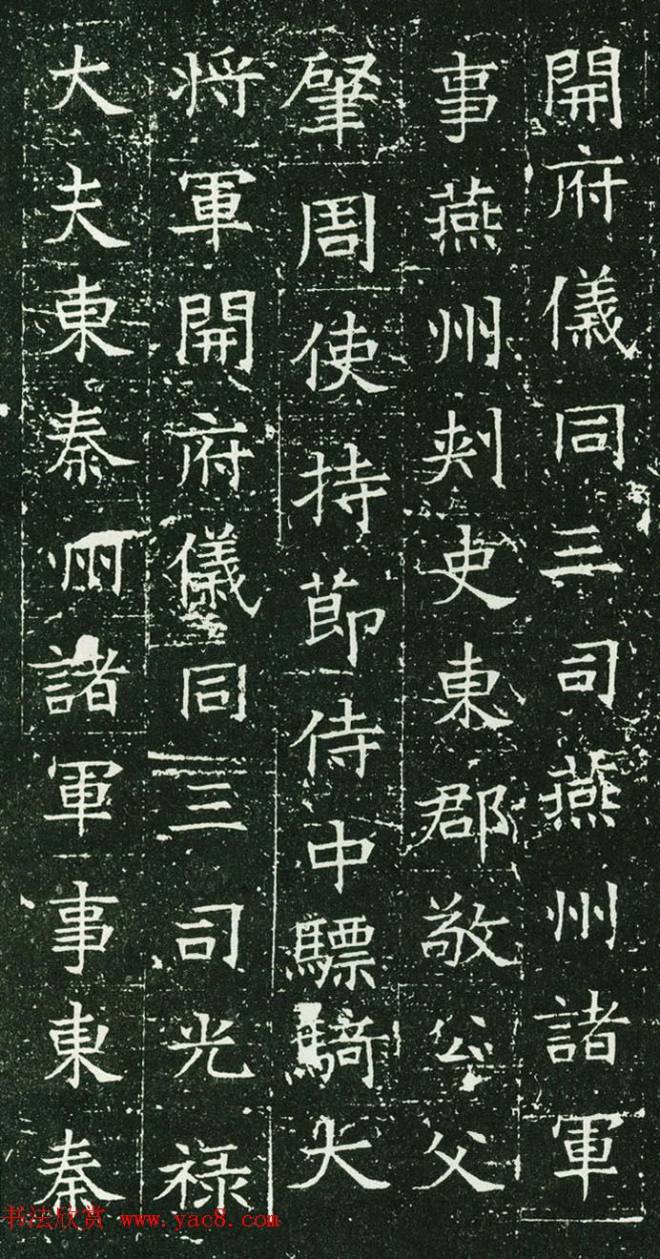 開府儀同三司燕州諸軍
事燕州刾史東郡敬公父
肈周使持節侍中驃騎大
將軍開府儀同三司光禄
大夫東秦州諸軍事東秦
书法欣赏 www.yac8.com